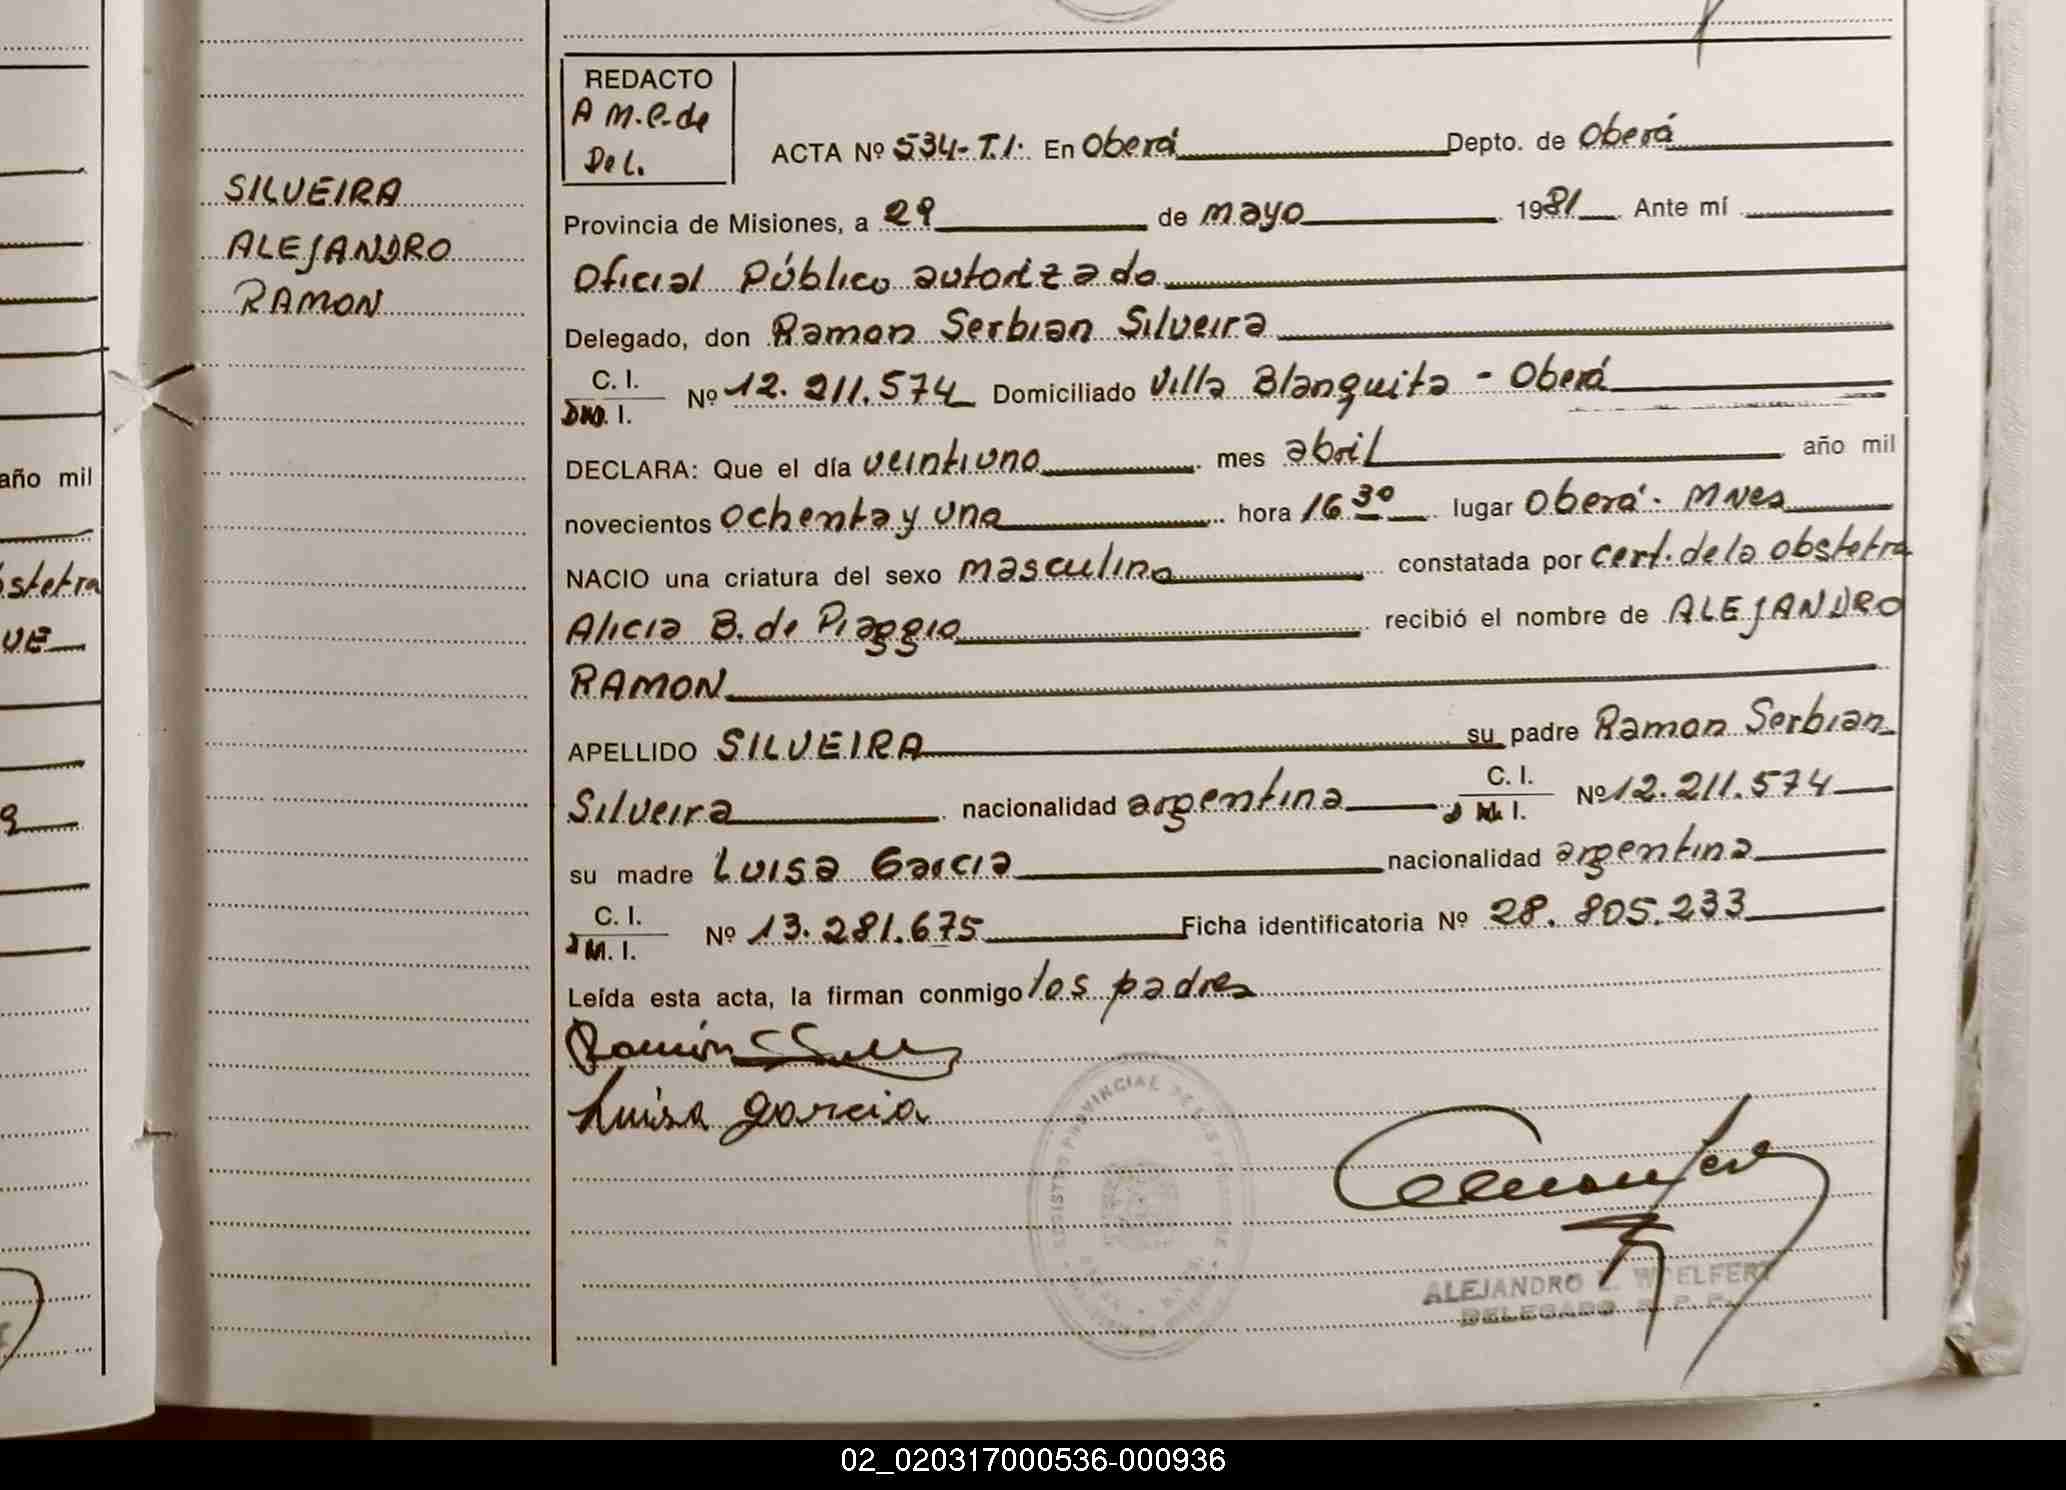 SILVEIRA
ALEJANDRO
RAMON
REDACTO
A M.C. de
Del.
ACTA Nº 534-T.I. En Oberá Depto. de Oberá
Provincia de Misiones, a 29 de mayo 1981 Ante mí
Oficial Público autorizado
Delegado, don Ramon Serbian Silveira
C. I.
DNI. I. Nº 12.211.574 Domiciliado Villa Blanquita - Oberá
DECLARA: Que el día veintiuno mes abril año mil
novecientos ochenta y uno hora 16 30 lugar Oberá - Mnes
NACIO una criatura del sexo masculino constatada por cert. de la obstetra
Alicia B. de Piaggio recibió el nombre de ALEJANDRO
RAMON
APELLIDO SILVEIRA su padre Ramon Serbian
Silveira nacionalidad argentina C. I. M. I. Nº 12.211.574
su madre Luisa Garcia nacionalidad argentina
C. I.
M. I. Nº 13.281.675 Ficha identificatoria Nº 28.805.233
Leída esta acta, la firman conmigo los padres
Ramón
Luisa garcia
REGISTRO PROVINCIAL DE LAS PERSONAS
ALEJANDRO E. WOELFERT
DELEGADO R. P. P.
año mil
obstetra
UE
02_020317000536-000936